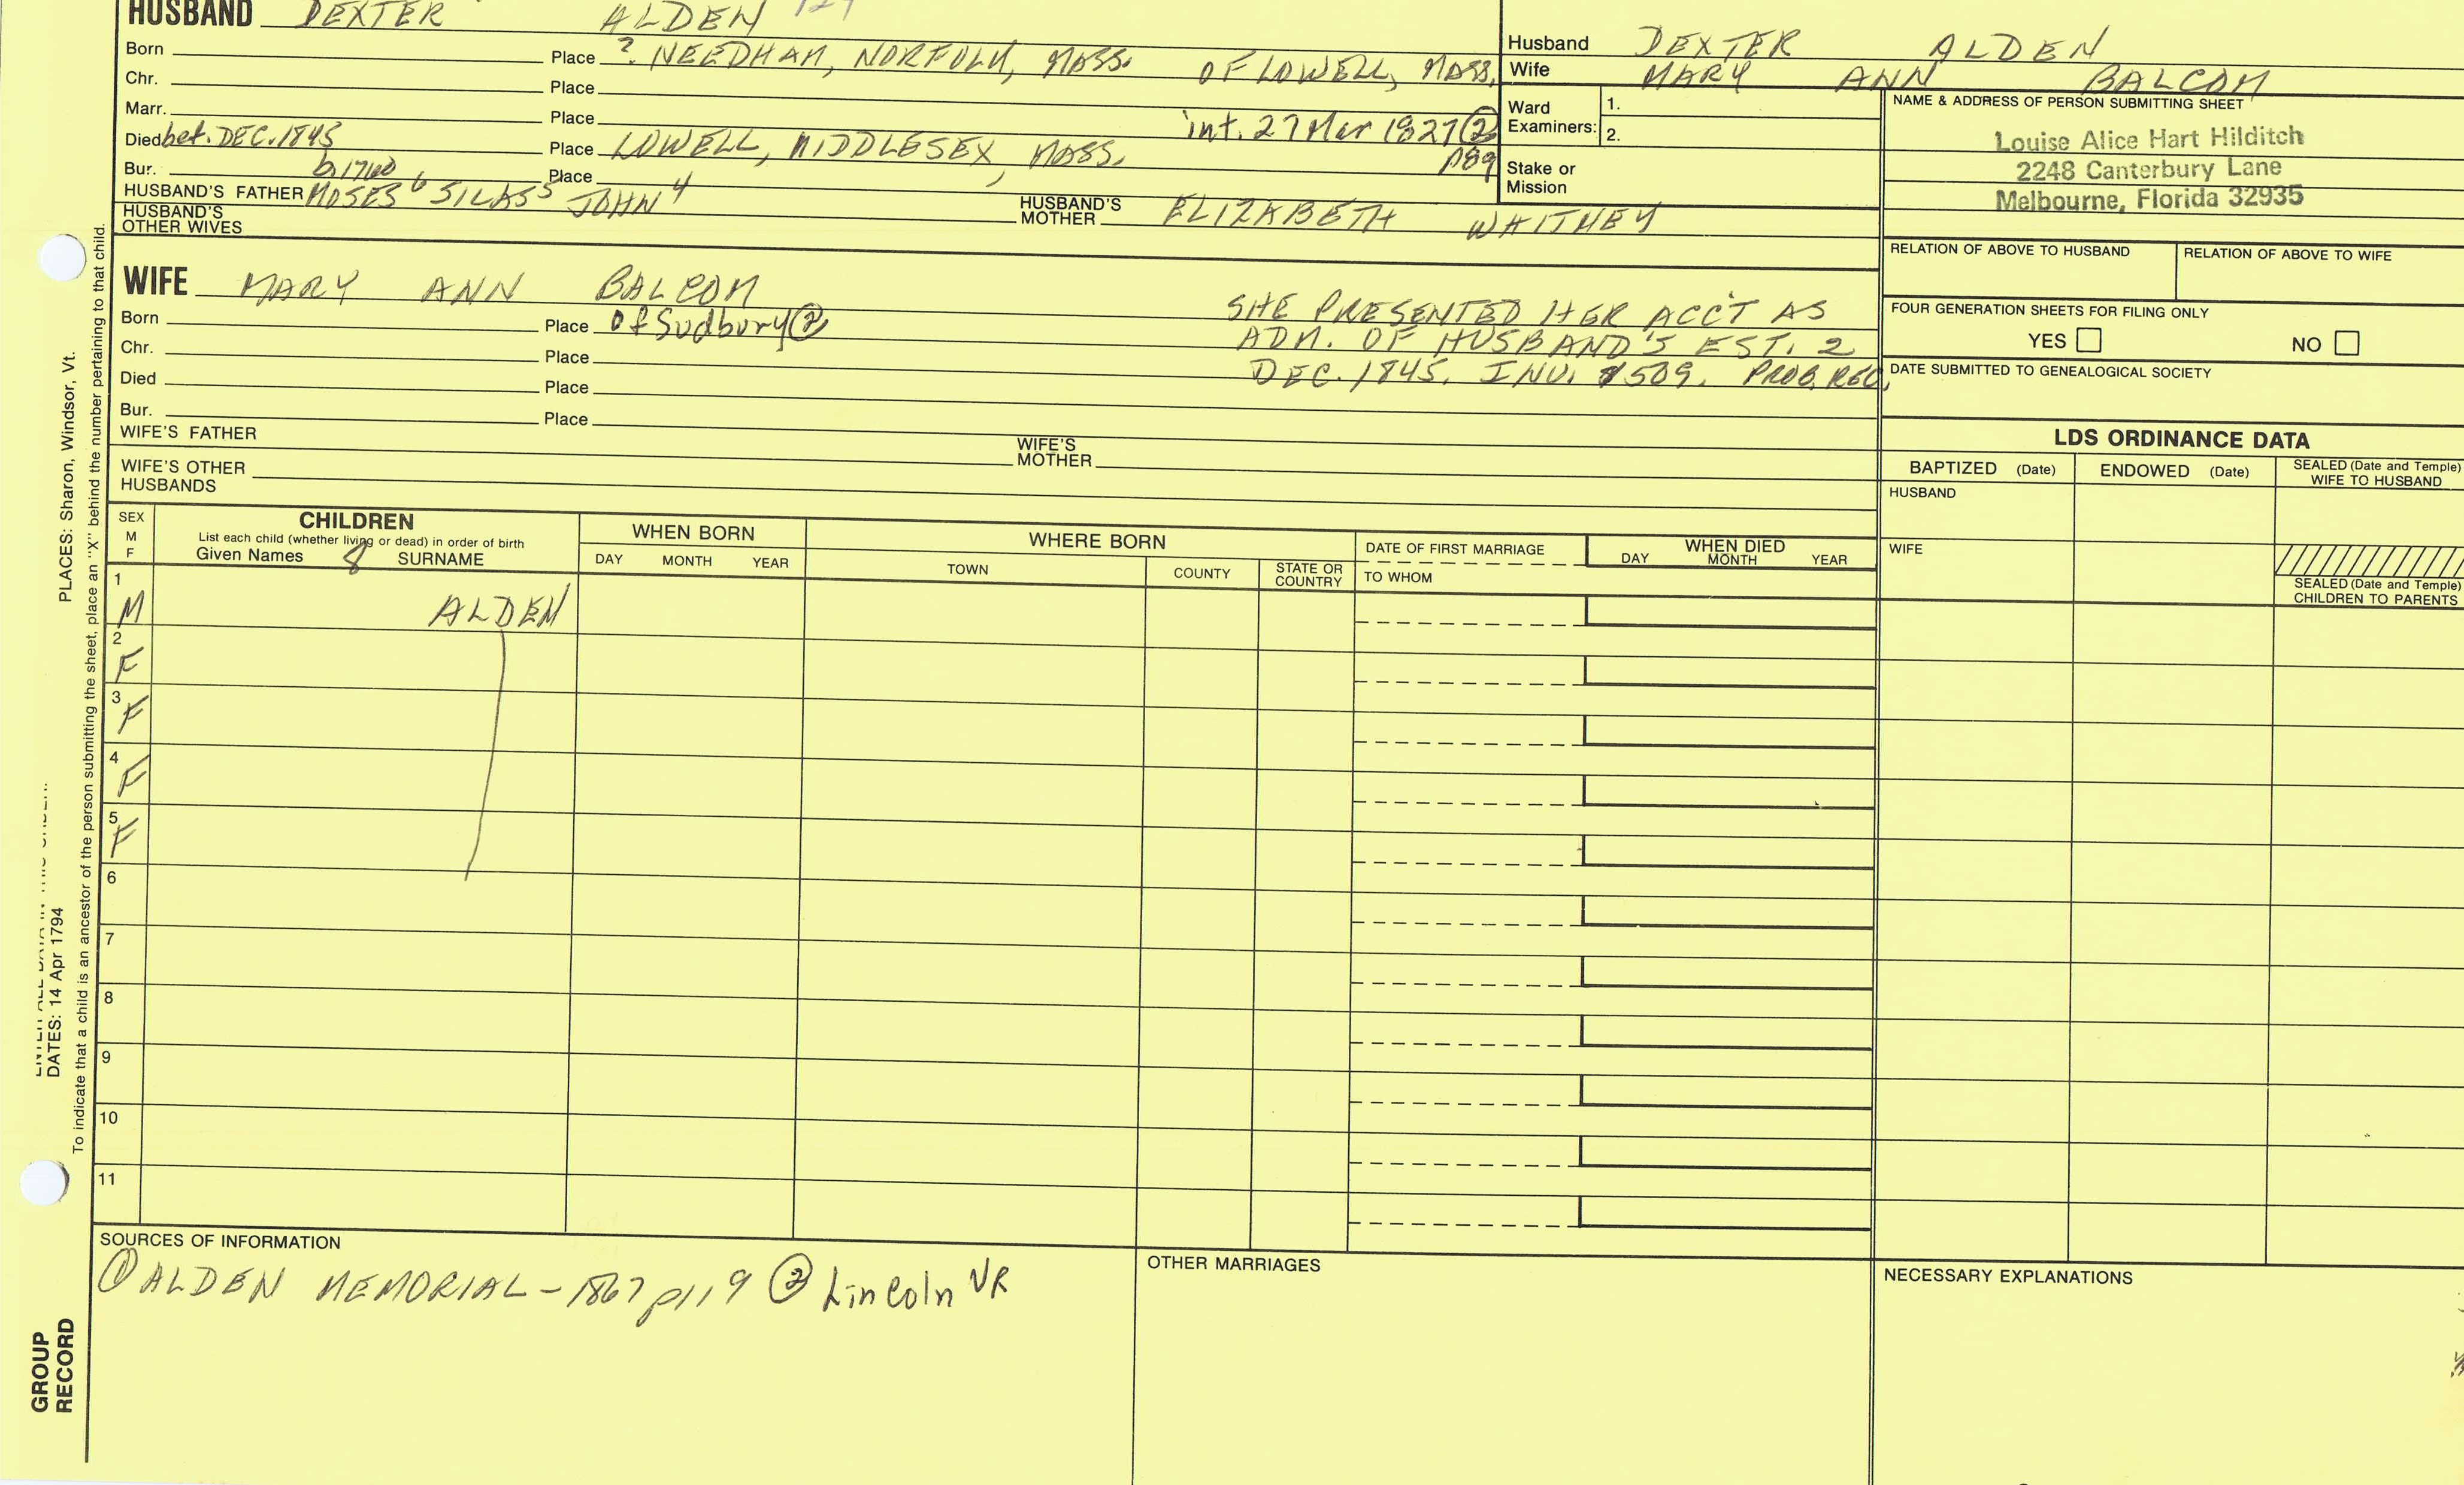 HUSBAND DEXTER ALDEN
Born Place ? NEEDHAM, NORFOLK, MASS. OF LOWELL, MASS.
Chr. Place
Marr. Place int. 27 Mar 1827 ②
Died bet. DEC. 1845 Place LOWELL, MIDDLESEX, MASS. p89
Bur. Place
b 1760
HUSBAND'S FATHER MOSES 6 SILAS 5 JOHN 4 HUSBAND'S MOTHER ELIZABETH WHITNEY
HUSBAND'S OTHER WIVES
Husband DEXTER ALDEN
Wife MARY ANN BALCOM
Ward Examiners: 1.
2.
Stake or Mission
NAME & ADDRESS OF PERSON SUBMITTING SHEET
Louise Alice Hart Hilditch
2248 Canterbury Lane
Melbourne, Florida 32935
RELATION OF ABOVE TO HUSBAND RELATION OF ABOVE TO WIFE
FOUR GENERATION SHEETS FOR FILING ONLY
YES NO
DATE SUBMITTED TO GENEALOGICAL SOCIETY
WIFE MARY ANN BALCOM
Born Place of Sudbury ②
Chr. Place
Died Place
Bur. Place
SHE PRESENTED HER ACC'T AS
ADM. OF HUSBAND'S EST. 2
DEC. 1845. INV. $509. PROB. REC.
WIFE'S FATHER WIFE'S MOTHER
WIFE'S OTHER HUSBANDS
LDS ORDINANCE DATA
BAPTIZED (Date) ENDOWED (Date) SEALED (Date and Temple) WIFE TO HUSBAND
HUSBAND
WIFE
SEALED (Date and Temple) CHILDREN TO PARENTS
SEX M F
CHILDREN
List each child (whether living or dead) in order of birth
Given Names 8 SURNAME
WHEN BORN
DAY MONTH YEAR
WHERE BORN
TOWN COUNTY STATE OR COUNTRY
DATE OF FIRST MARRIAGE
TO WHOM
WHEN DIED
DAY MONTH YEAR
1 M ALDEN
2 F
3 F
4 F
5 F
6
7
8
9
10
11
SOURCES OF INFORMATION
① ALDEN MEMORIAL - 1867 p119 ② Lincoln VR
OTHER MARRIAGES
NECESSARY EXPLANATIONS
PLACES: Sharon, Windsor, Vt.
DATES: 14 Apr 1794
To indicate that a child is an ancestor of the person submitting the sheet, place an "X" behind the number pertaining to that child.
GROUP
RECORD